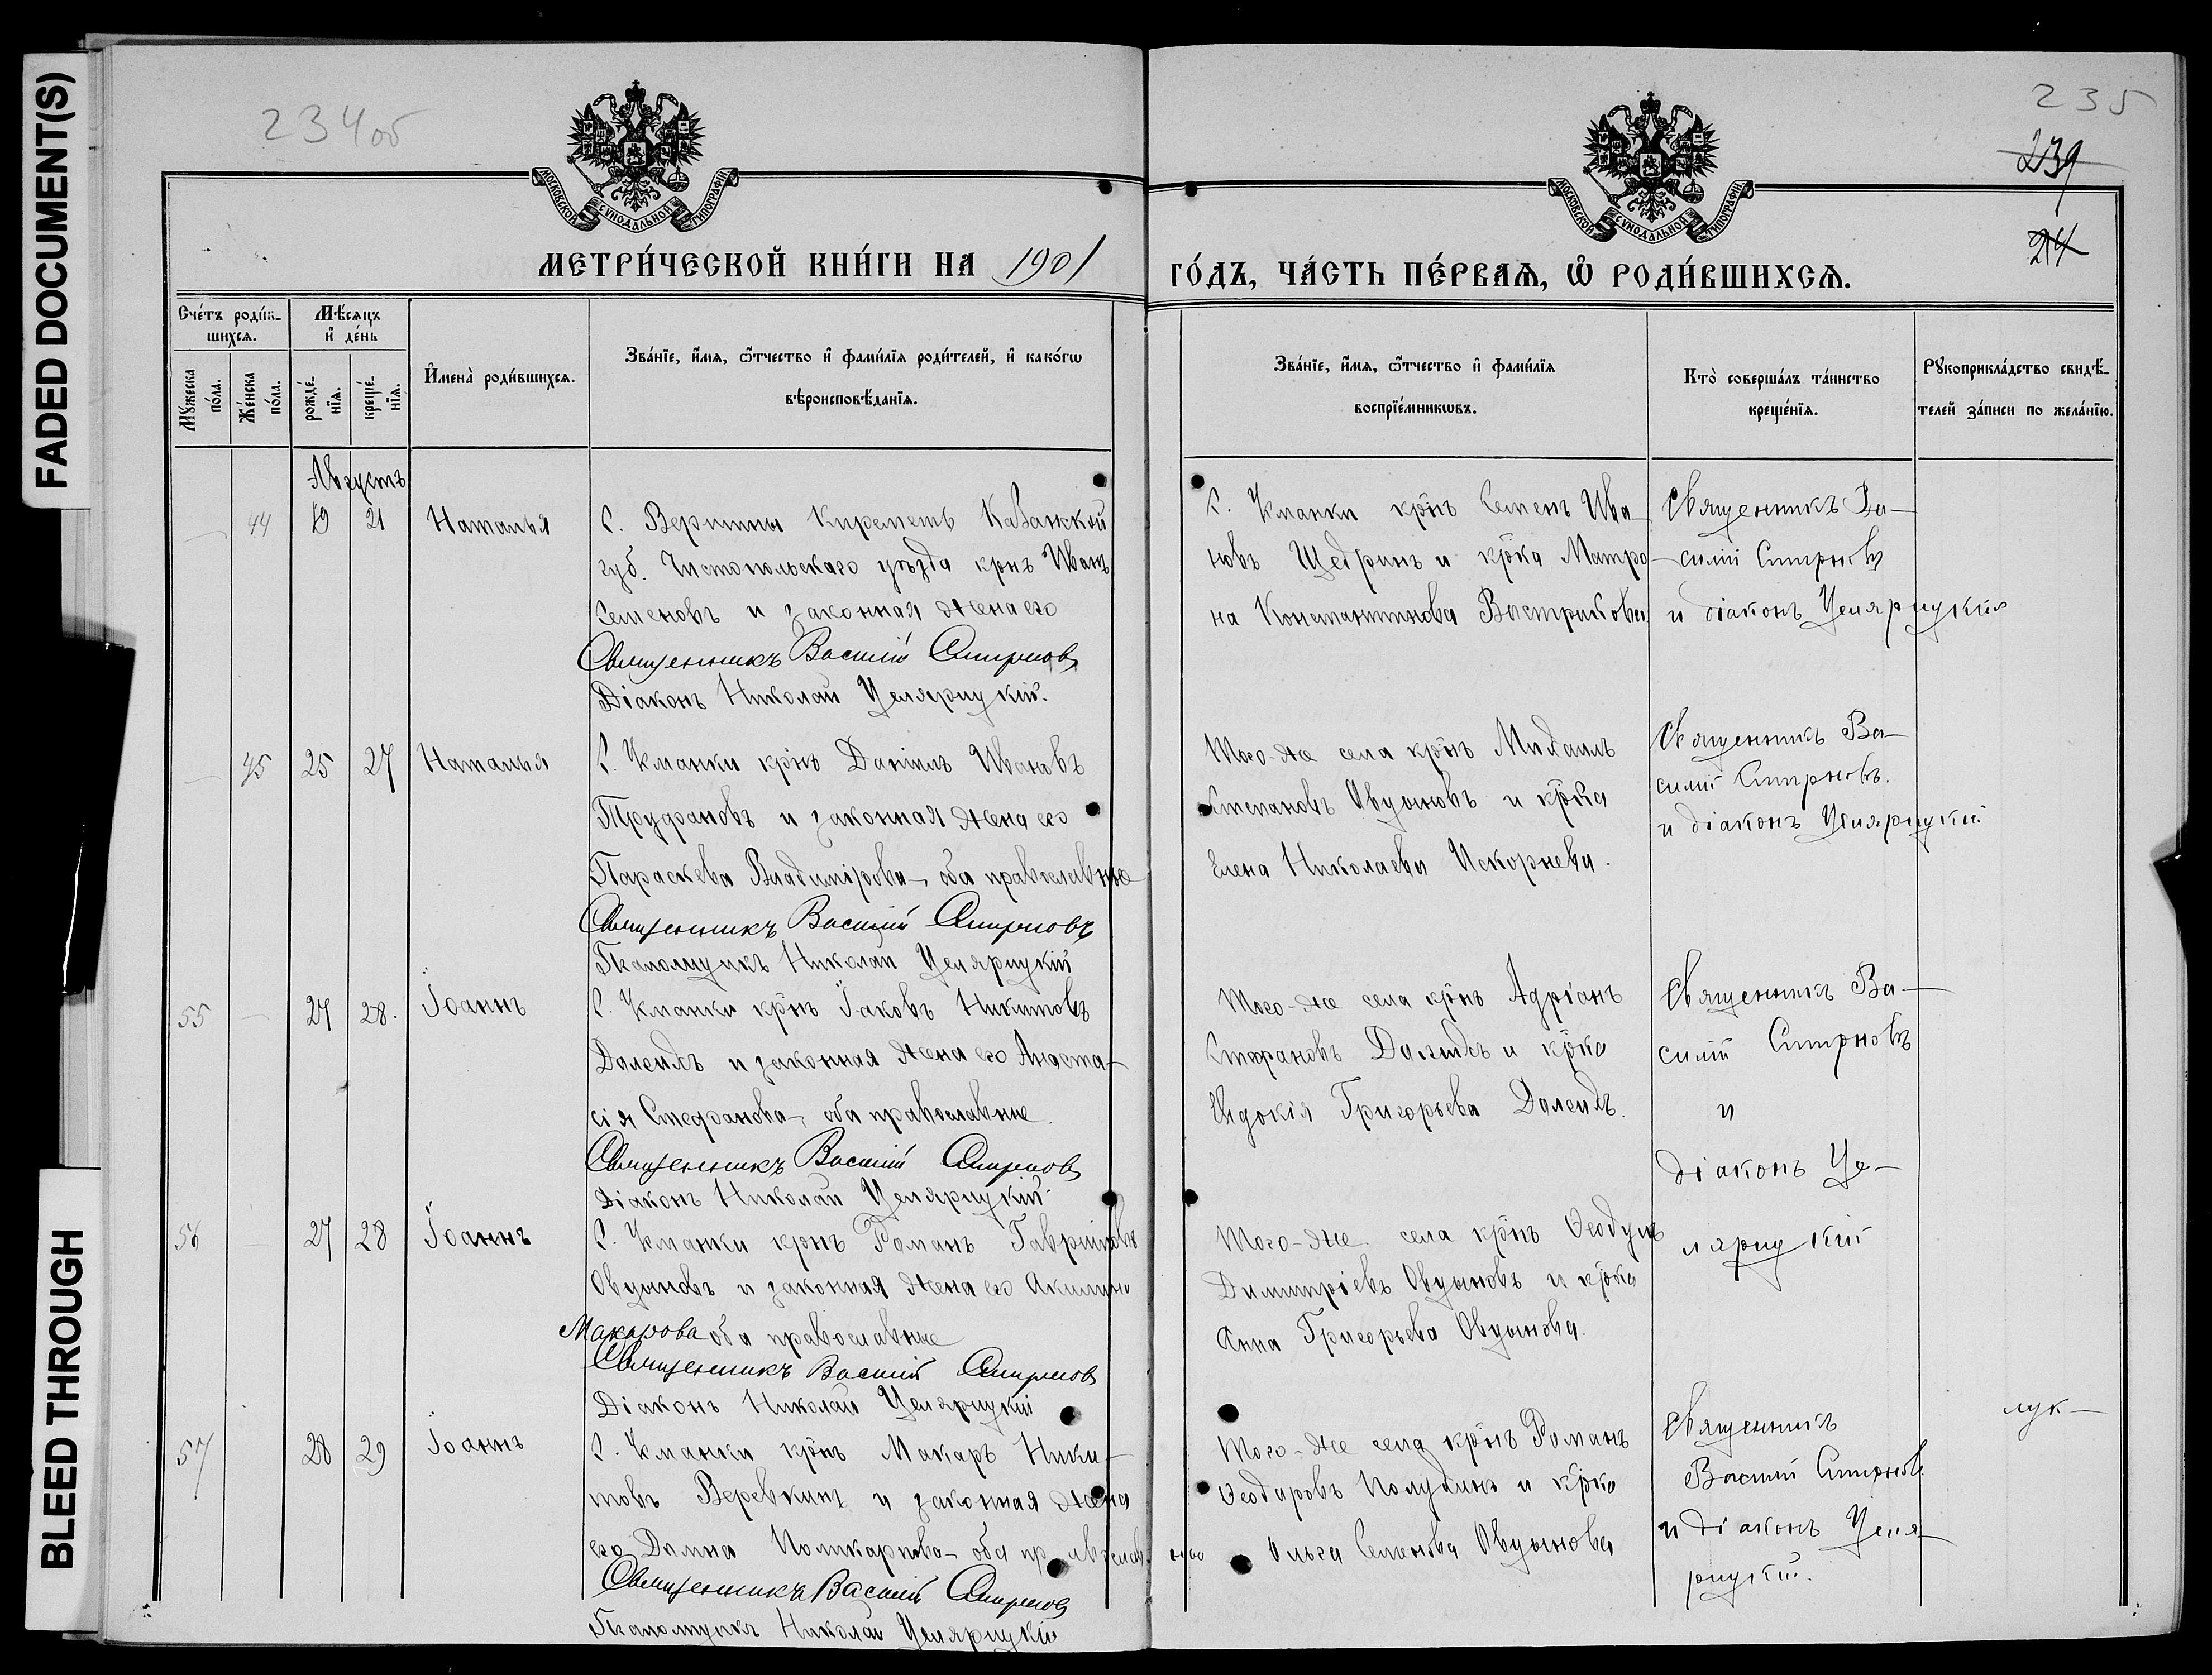 FADED DOCUMENT(S)
BLEED THROUGH
234об
235
239
24
МОСКОВСКОЙ СѴНОДАЛЬНОЙ ТИПОГРАФІИ
МОСКОВСКОЙ СѴНОДАЛЬНОЙ ТИПОГРАФІИ
МЕТРИ́ЧЕСКОЙ КНИ́ГИ НА 1901
ГО́ДЪ, ЧА́СТЬ ПЕ́РВАѦ, Ѽ РОДИ́ВШИХСѦ.
Сче́тъ роди́в-
шихсѧ.
Мꙋ́жеска по́ла.
Же́нска по́ла.
Мѣ́сѧцъ
и҆ де́нь
рожде́-
нїѧ.
креще́-
нїѧ.
И҆мена̀ роди́вшихсѧ.
Зва́нїе, и҆́мѧ, ѻ҆́тчество и҆ фами́лїѧ роди́телей, и҆ како́гѡ
вѣроисповѣ́данїѧ.
Зва́нїе, и҆́мѧ, ѻ҆́тчество и҆ фами́лїѧ
воспрїе́мникѡвъ.
Кто̀ соверша́лъ та́инство
креще́нїѧ.
Рꙋкоприкла́дство свидѣ́-
телей за́писи по жела́нїю.
Августъ
44 19 21 Наталья
С. Вершины Киреметь Казанской
губ. Чистопольскаго уѣзда крнъ Иванъ
Семеновъ и законная жена его
Священникъ Василій Смирновъ
Діаконъ Николай Целярицкій.
С. Кманки крнъ Семенъ Ива-
новъ Щедринъ и крка Матро-
на Константинова Вострикова
Священникъ Ва-
силій Смирновъ
и діаконъ Целярицкій
45 25 27 Наталья
С. Кманки крнъ Даніилъ Ивановъ
Труфановъ и законная жена его
Параскева Владимірова, оба православные
Священникъ Василій Смирновъ
Псаломщикъ Николай Целярицкій
Того-же села крнъ Михаилъ
Степановъ Овцыновъ и крка
Елена Николаева Искорнева.
Священникъ Ва-
силій Смирновъ.
и діаконъ Целярицкій
55 27 28. Іоаннъ
С. Кманки крнъ Іаковъ Никитовъ
Далецъ и законная жена его Анаста-
сія Стефанова, оба православные.
Священникъ Василій Смирновъ
Діаконъ Николай Целярицкій
Того-же села крнъ Адріанъ
Стефановъ и крка
Евдокія Григорьева
Священникъ Ва-
силій Смирновъ
и
діаконъ Це-
лярицкій
56 27 28 Іоаннъ
С. Кманки крнъ Романъ Гавріиловъ
Овцыновъ и законная жена его Акилина
Макарова оба православные
Священникъ Василій Смирновъ
Діаконъ Николай Целярицкій
Того-же села крнъ Ѳеодулъ
Димитріевъ Овцыновъ и крка
Анна Григорьева Овцынова.
57 28 29 Іоаннъ
С. Кманки крнъ Макаръ Ники-
товъ Веревкинъ и законная жена
его Домна Поликарпова, оба православ
Священникъ Василій Смирновъ
Псаломщикъ Николай Целярицкій
Того-же села крнъ Романъ
Ѳеодоровъ Полухинъ и крка
Ольга Семенова Овцынова
Священникъ
Василій Смирновъ
и діаконъ Целя-
рицкій.